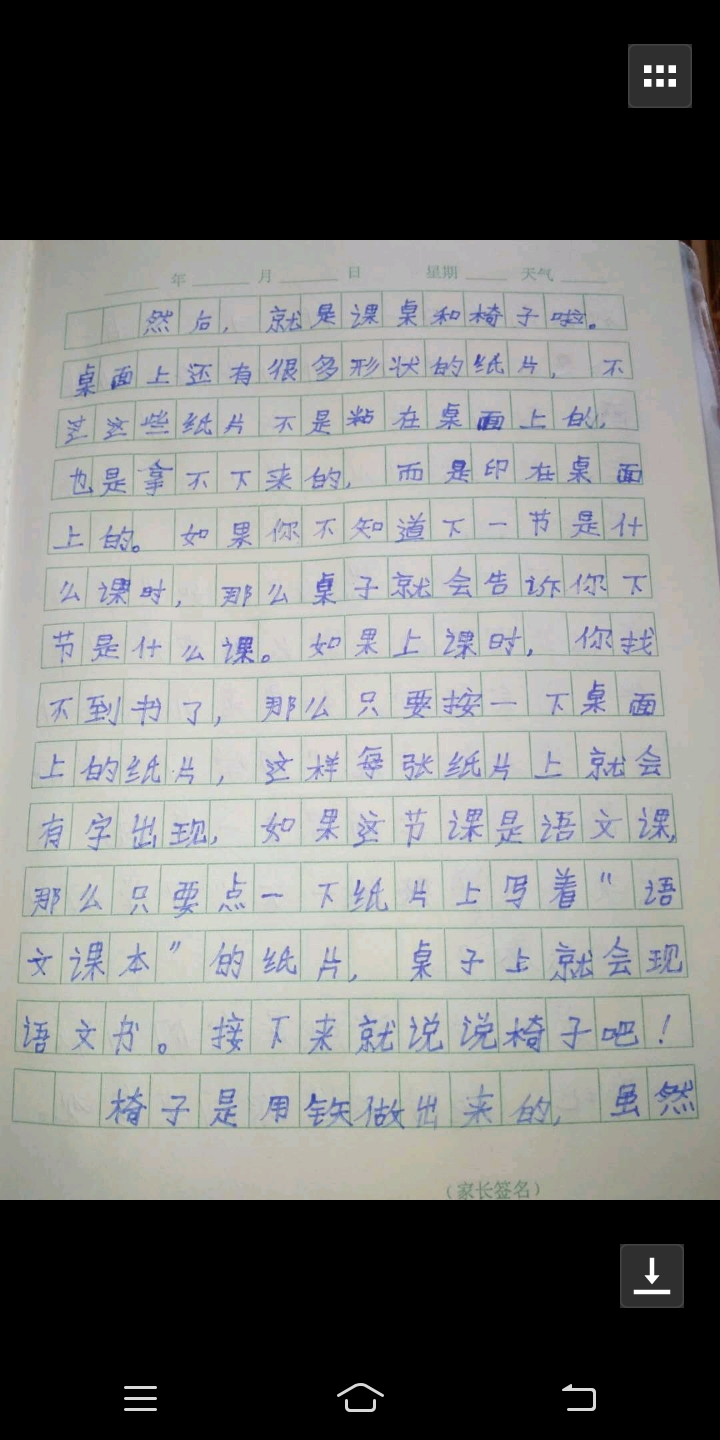 年 月 日 星期 天气
然后，就是课桌和椅子啦。
桌面上还有很多形状的纸片，不
过这些纸片不是粘在桌面上的，
也是拿不下来的，而是印在桌面
上的。如果你不知道下一节是什
么课时，那么桌子就会告诉你下
节是什么课。如果上课时，你找
不到书了，那么只要按一下桌面
上的纸片，这样每张纸片上就会
有字出现，如果这节课是语文课，
那么只要点一下纸片上写着“语
文课本”的纸片，桌子上就会现
语文书。接下来就说说椅子吧！
椅子是用铁做出来的，虽然
（家长签名）